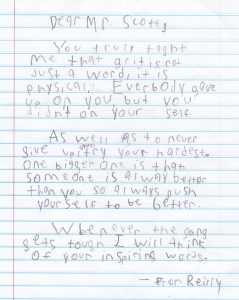 Dear Mr. Scott,
You truly taght
me that grit is not
Just a word, it is
physical. Everybody gave
up on you but you
didn't on your self.
As well as to never
give up, try your hardest.
One bigger one is that
someone is always better
than you so always push
your self to be better.
When ever the going
gets tough I will think
of your inspiring words.
- From Reilly